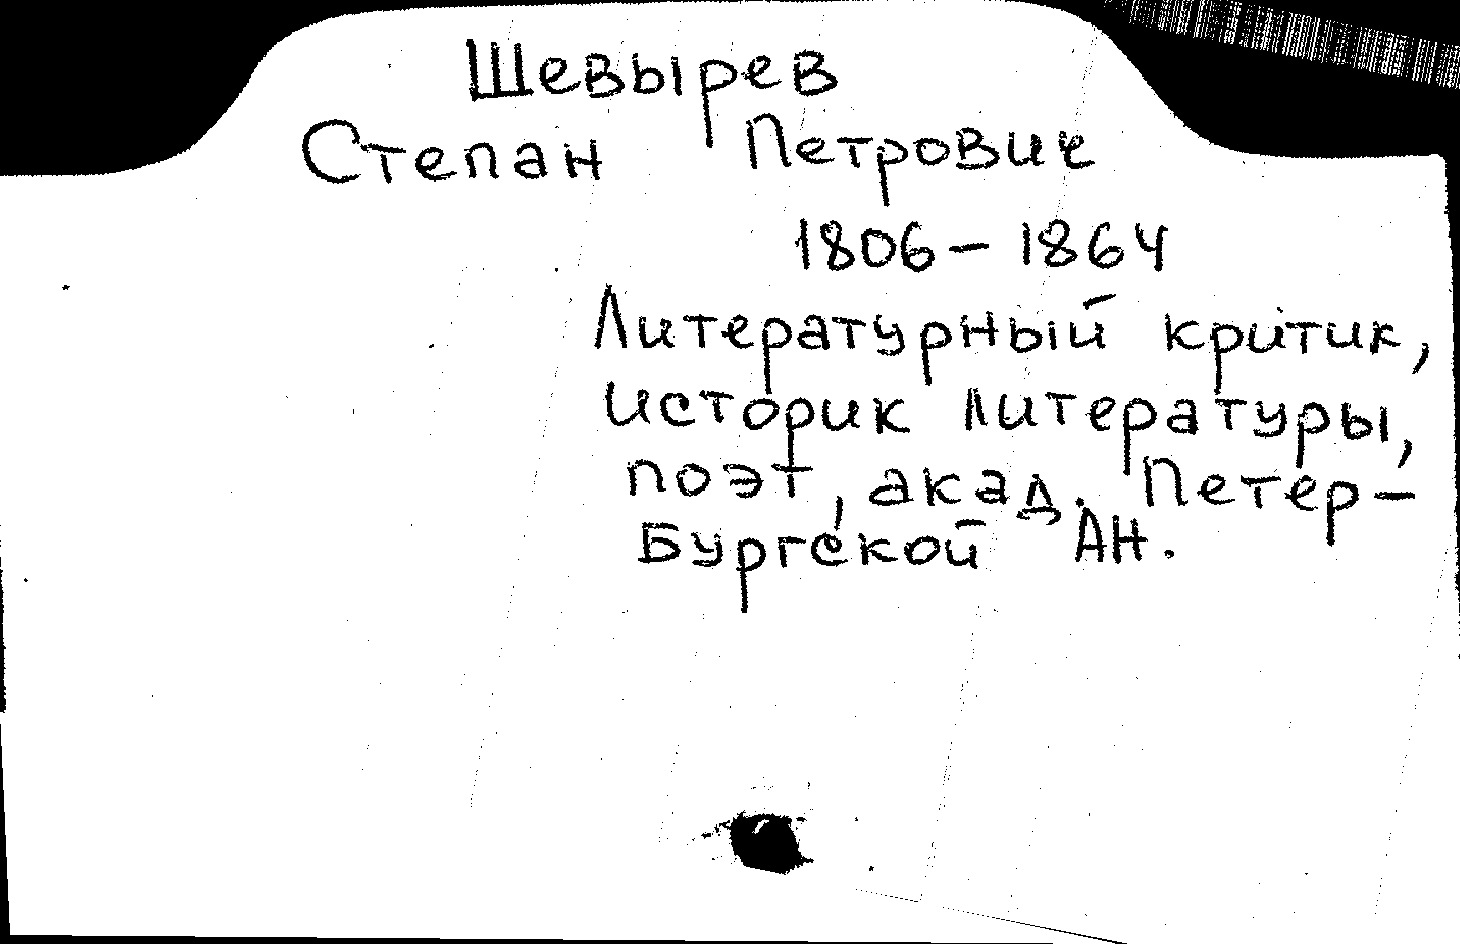 Шевырев
Степан Петрович
1806 – 1864
Литературный критик,
историк литературы,
поэт, акад. Петер-
бургской АН.